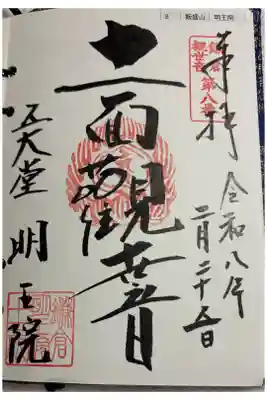 8 飯盛山 明王院
奉拝
令和八年
二月二十五日
鎌倉
観世音
第八番
十一面観世音
五大堂 明王院